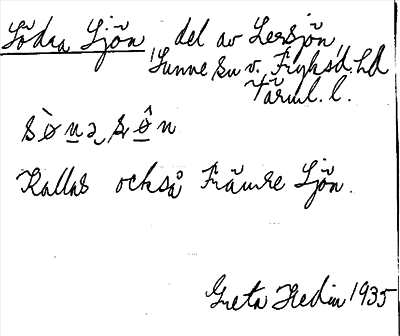 Södra Sjön del av Lersjön,
Sunne sn v. Fryksd. hd
Värml. l.
sònə sôn
Kallas också Främre Sjön.
Greta Hedin 1935